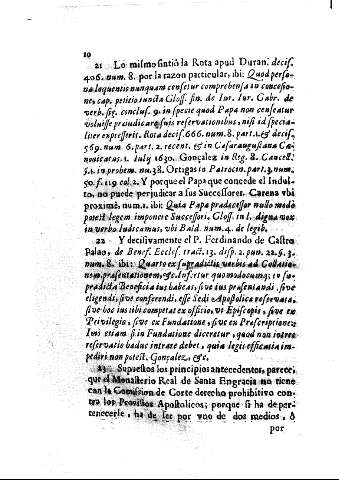 10
21 Lo mismo sintiò la Rota apud Duran. decis.
406. num. 8. por la razon particular, ibi: Quod perso-
na loquentis nunquam censetur comprehensa in concessio-
ne, cap. petitio iuncta Gloss. fin. de Iur. Iur. Gabr. de
verb. sig. conclus. 9. in specie quod Papa non censeatur
voluisse præiudicare suis reservationibus, nisi id specia-
liter expresserit. Rota decis. 666. num. 8. part. 1. & decis.
569. num. 6. part. 2. recent. & in Cæsaraugustana Ca-
nonicatus 1. Iuly 1630. Gonçalez in Reg. 8. Cancell.
§. 1. in probem. nu. 38. Ortigas in Patrocin. part. 3. num.
50. f. 119 col. 2. Y porque el Papa que concede el Indul-
to, no puede perjudicar a sus Successores. Carena vbi
proximè, num. 1. ibi: Quia Papa prædecessor nullo modo
potest legem imponere Successori, Gloss. in l. digna vox
in verbo Iudicamus, vbi Bald. num. 4. de legib.
22 Y decisivamente el P. Ferdinando de Castro
Palao, de Benef. Eccles. tract. 13. disp. 2. pun. 22. §. 3.
num. 8. ibi: Quarto ex supradictis verbis ad Collatio-
nem, præsentationem, &c. Infertur quomodocumq; in su-
pradicta Beneficia ius habeas, sive ius præsentandi, sive
eligendi, sive conferendi, esse Sedi Apostolica reservata,
sive hoc ius tibi competat ex officio, vt Episcopis, sive ex
Privilegio, sive ex Fundatione, sive ex Præscriptione:
Imò etiam si in Fundatione diceretur, quod non intret
reservatio badùc intrare debet, quia legis efficatia im-
pediri non potest. Gonçalez, &c.
23 Supuestos los principios antecedentes, parece;
que el Monasterio Real de Santa Engracia no tiene
can la Comission de Corte derecho prohibitivo con-
tra los Provistos Apostolicos; porque si ha de per-
tenecerle, ha de ser por vno de dos medios, ò
por